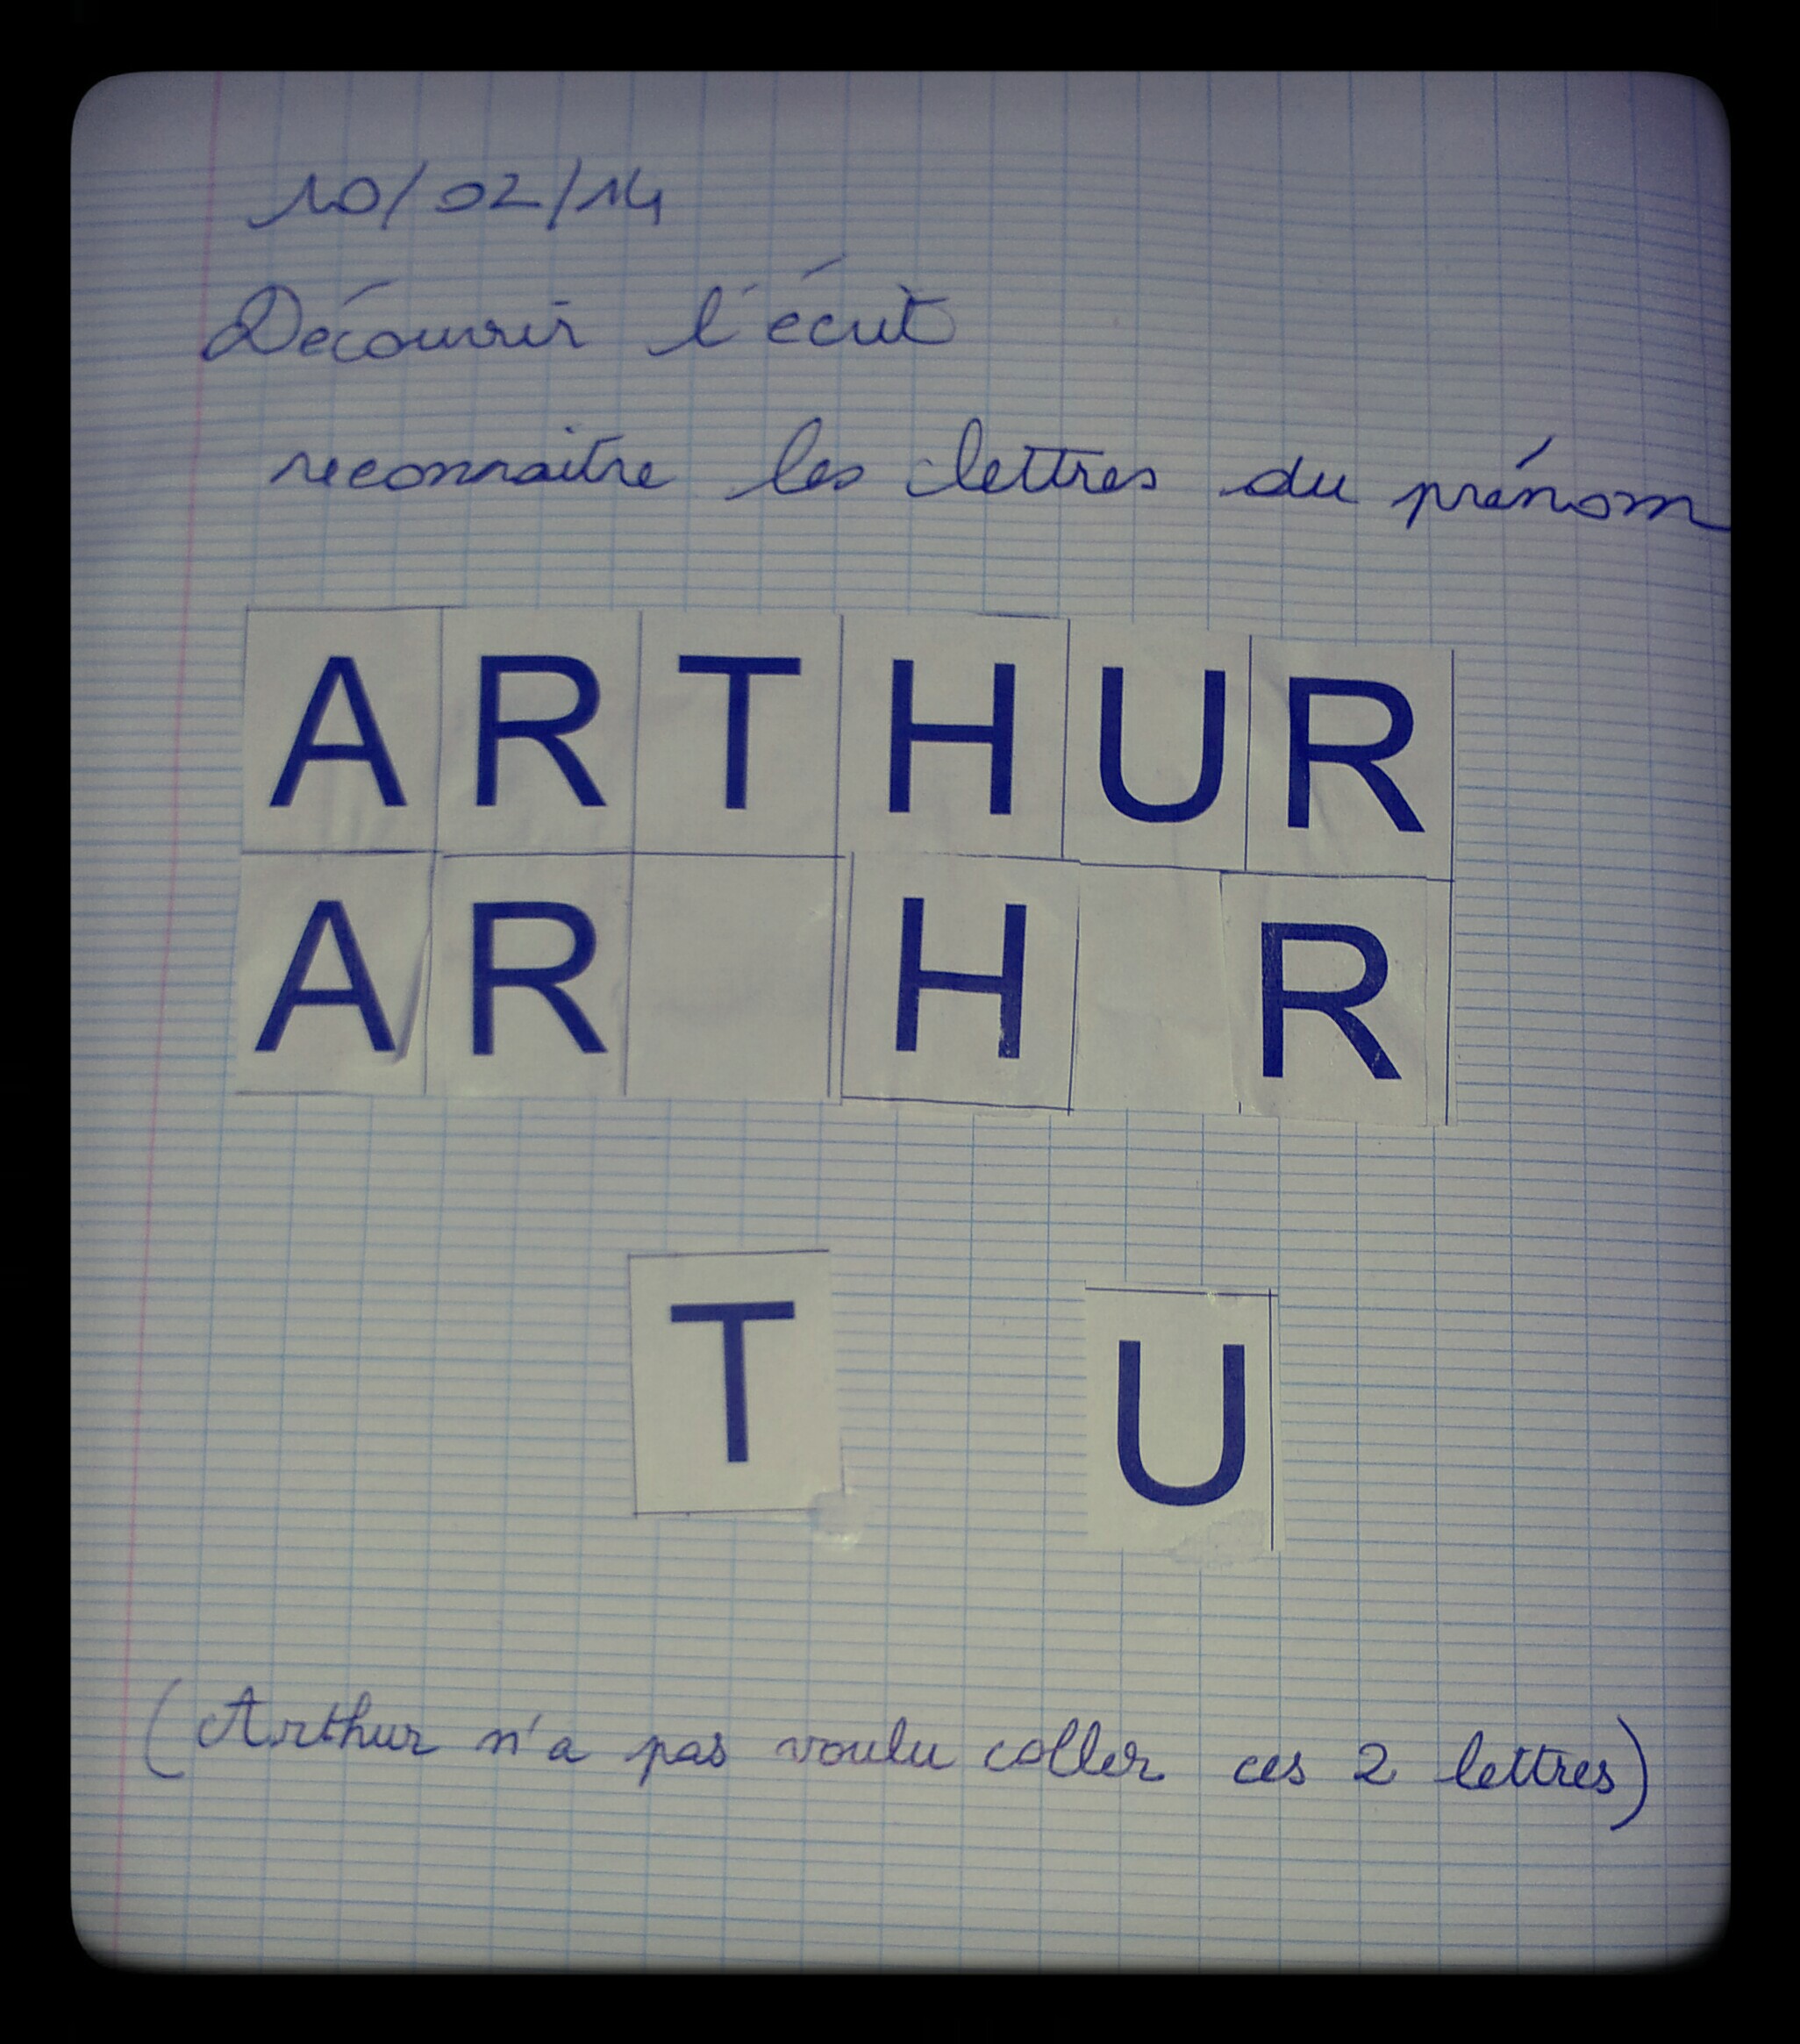 10/02/14
Découvrir l'écrit
reconnaitre les lettres du prénom
A R T H U R
A R H R
T U
(Arthur n'a pas voulu coller ces 2 lettres)